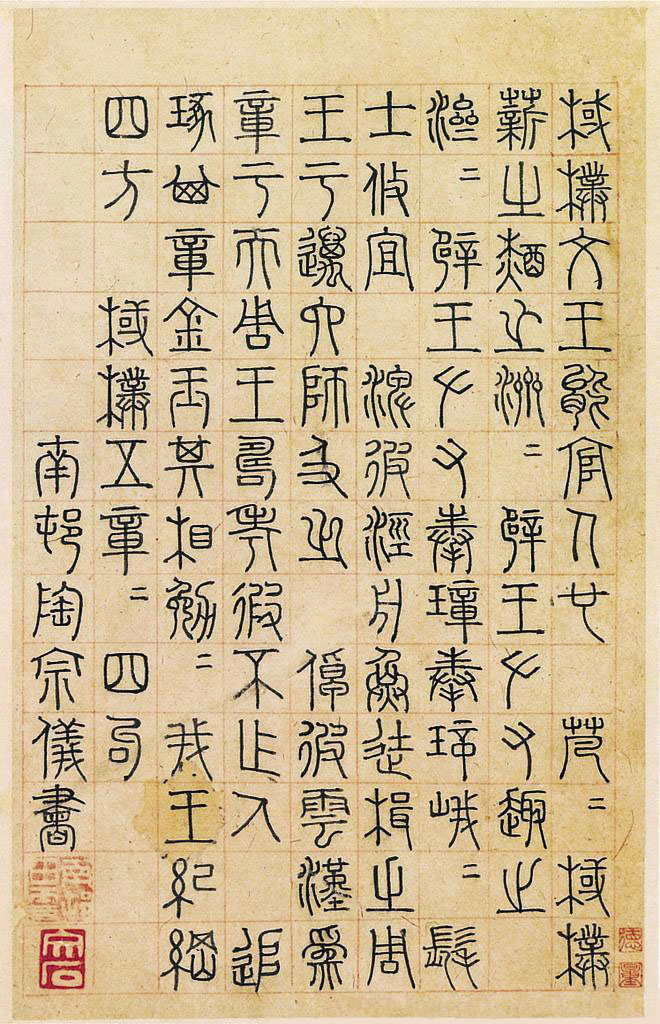 棫樸文王能官人也 芃二棫樸
薪之槱之濟二辟王左右趣之
濟二辟王左右奉璋奉璋峨二髦
士攸宜 淠彼涇舟烝徒楫之周
王于邁六師及之 倬彼雲漢爲
章于天周王壽考遐不作人 追
琢其章金玉其相勉二我王紀綱
四方 棫樸五章二四句
南邨陶宗儀書